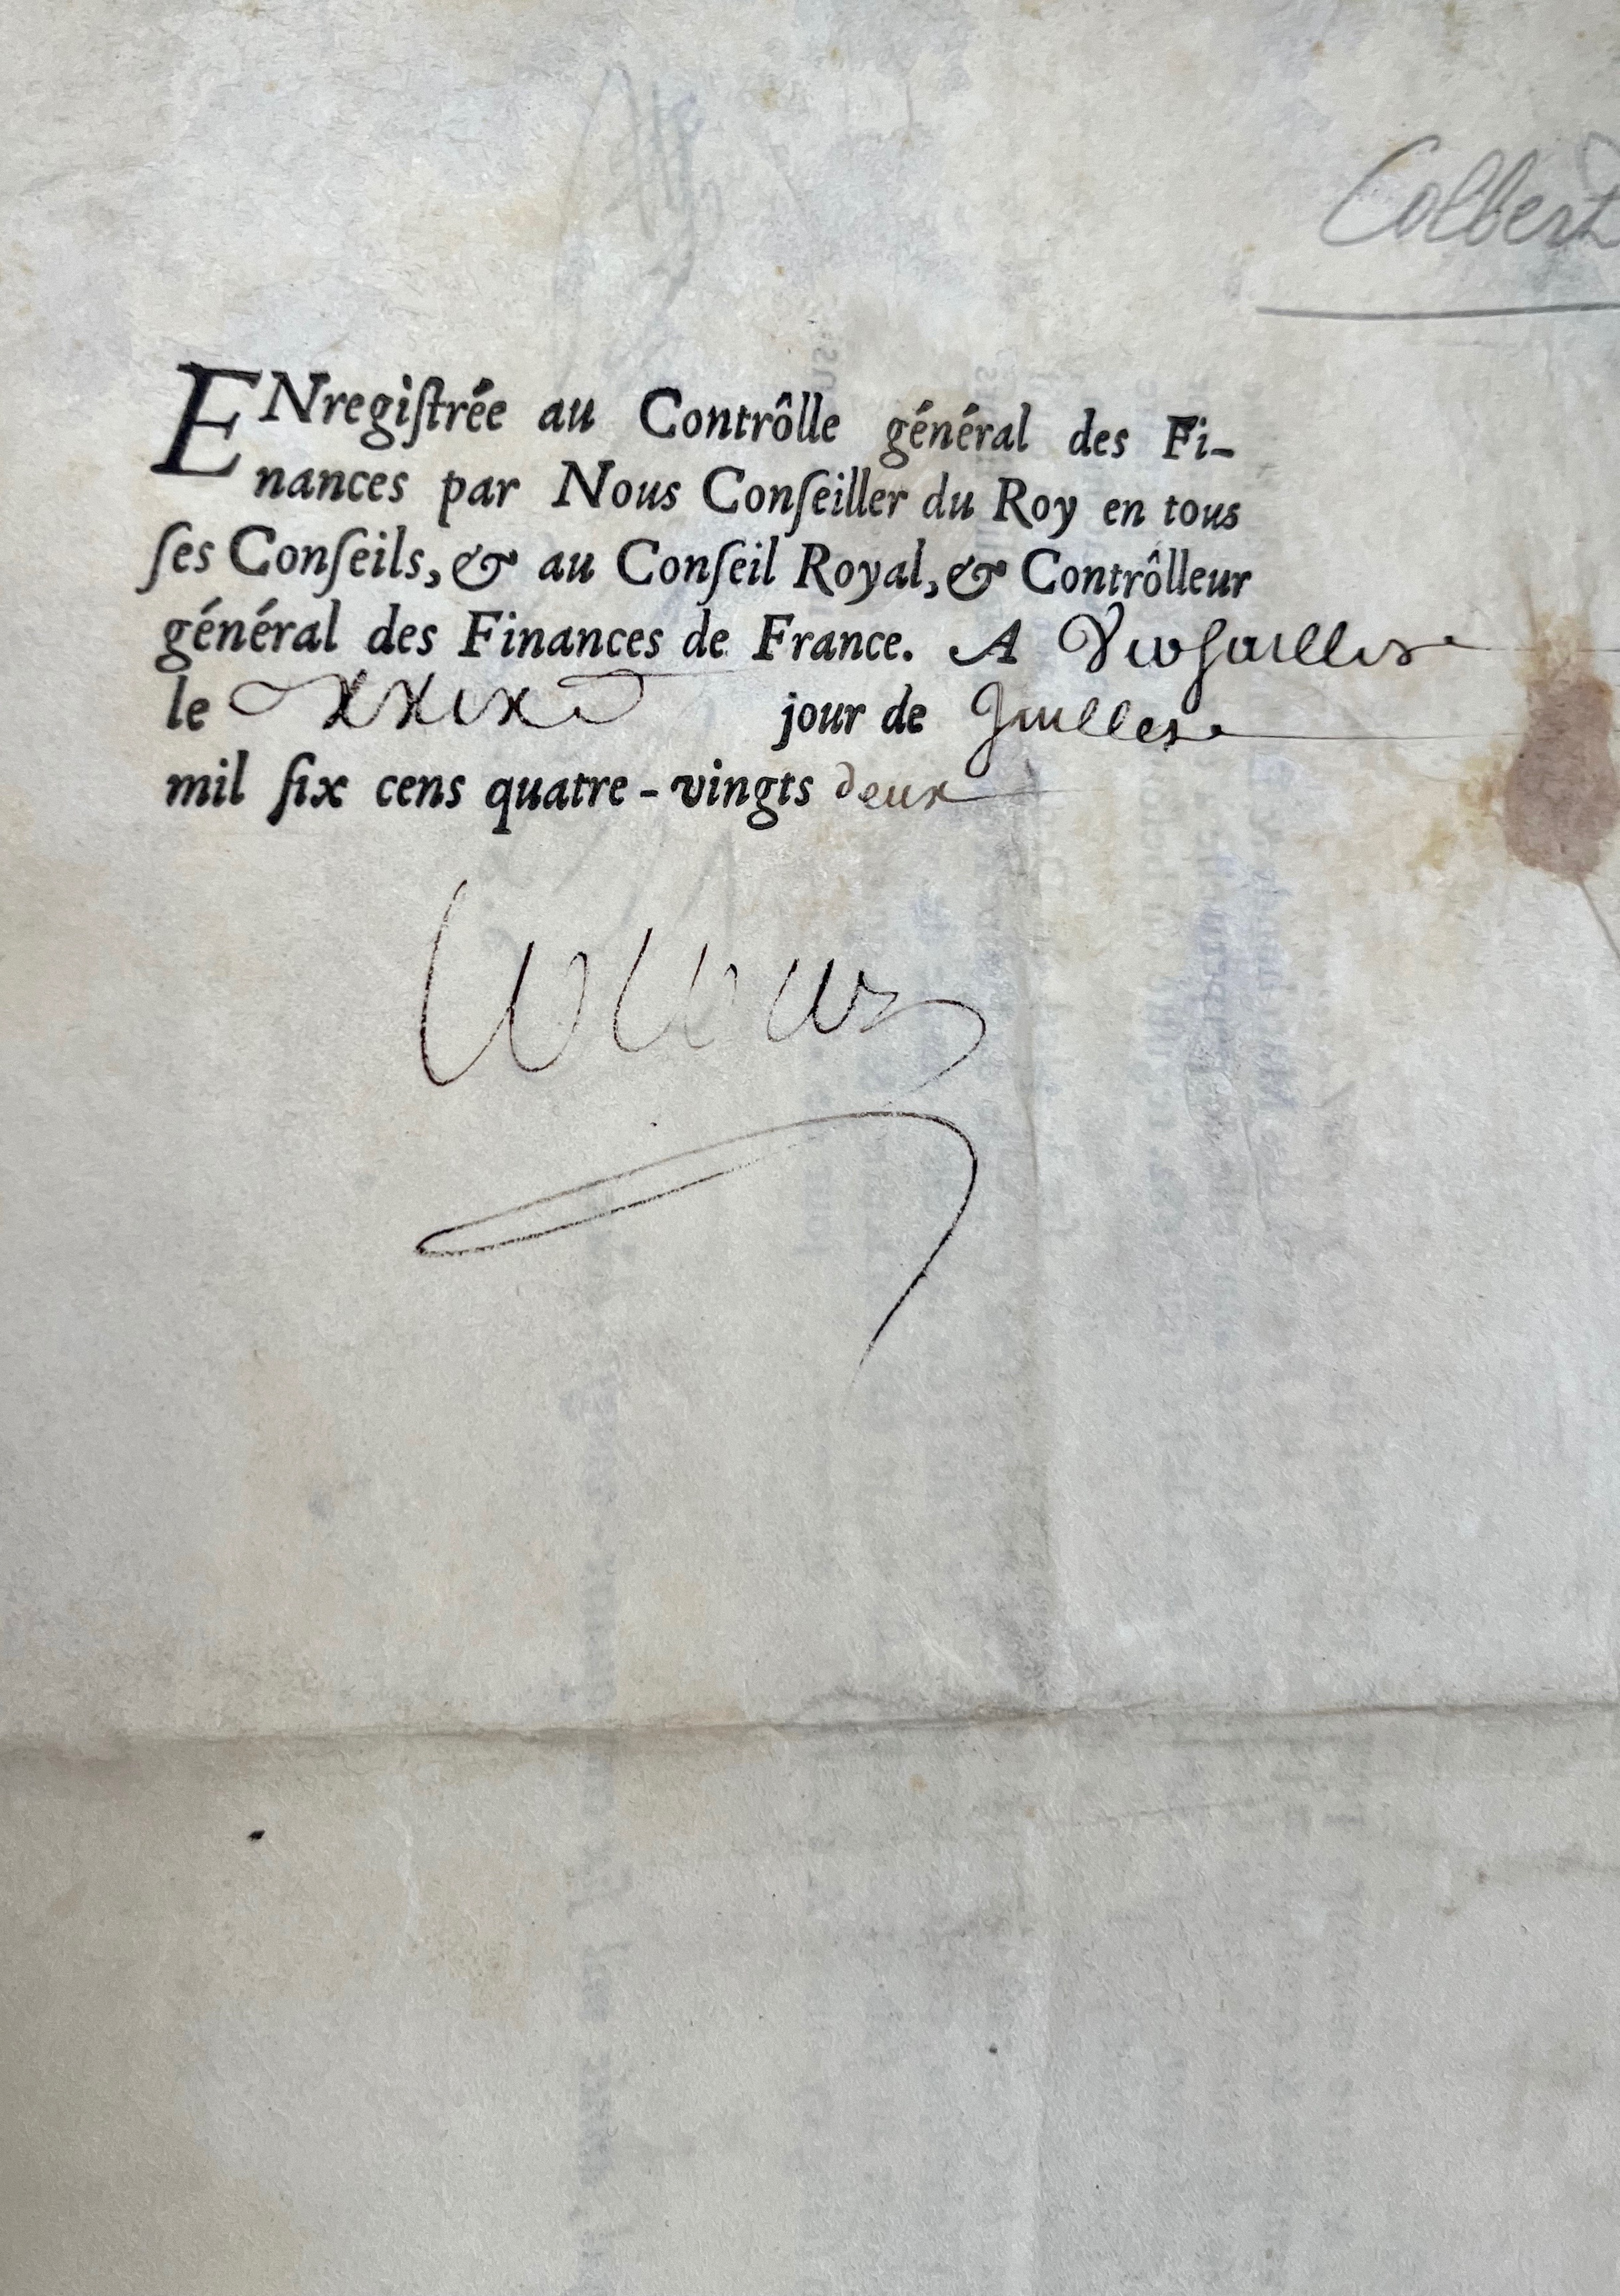 Colbert
ENregiſtrée au Contrôlle général des Fi-
nances par Nous Conſeiller du Roy en tous
ſes Conſeils, & au Conſeil Royal, & Contrôlleur
général des Finances de France. A Verſailles
le xxixe jour de Juillet
mil ſix cens quatre-vingts deux
Colbert